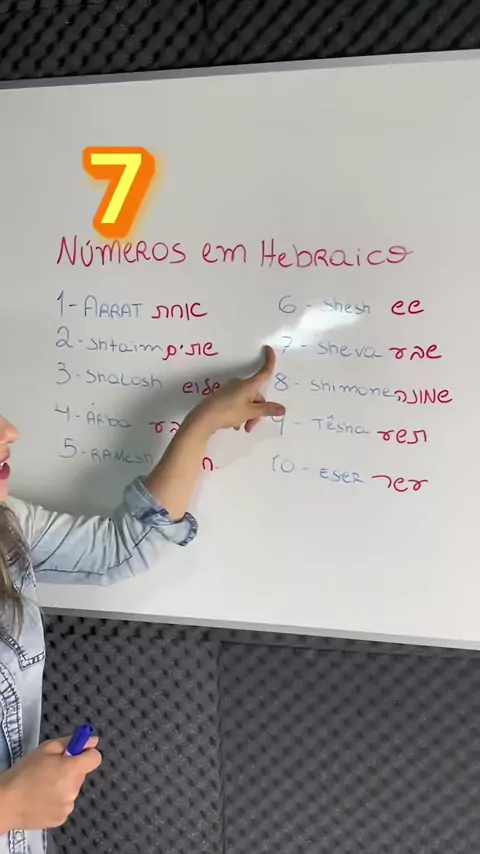 7
Números em Hebraico
1- ARRAT אחת
2- Shtaim שתים
3- Shalosh
4- Árba
5- RAMESH
6 - Shesh שש
7 - Sheva שבע
8 - Shimone שמונה
9 - Têsha תשע
10 - ESER עשר